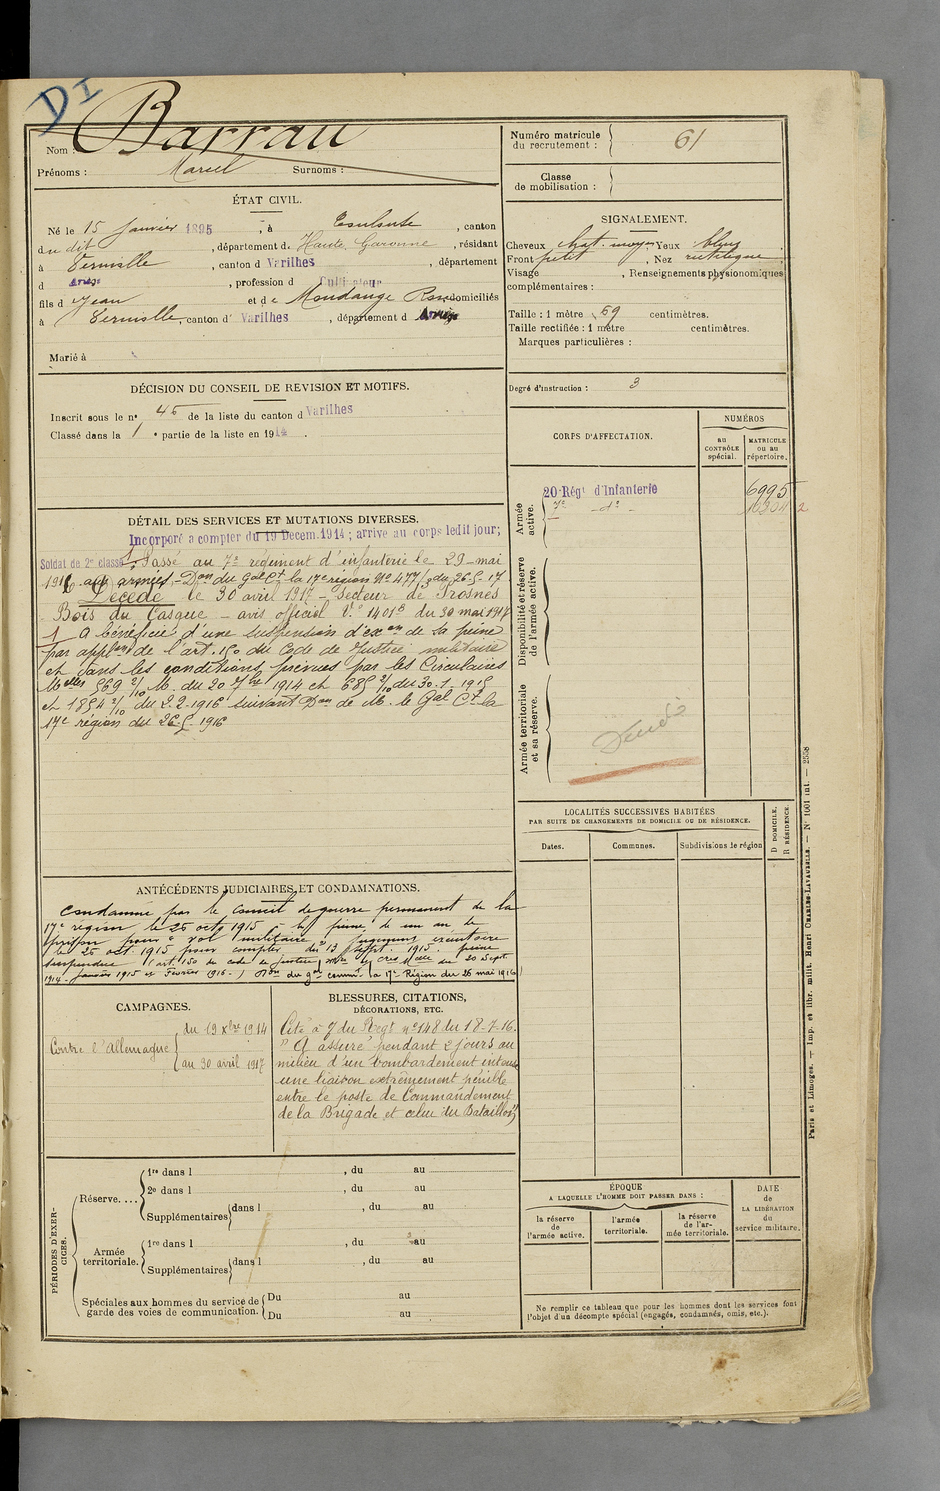 DI
Nom : Barrau
Prénoms : Marcel Surnoms :
ÉTAT CIVIL.
Né le 15 Janvier 1895, à , canton
du dit, département de Haute Garonne, résidant
à Verniolle, canton d Varilhes, département
d Ariège, profession d Cultivateur
fils d Jean et de Mondange domiciliés
à Verniolle, canton d' Varilhes, département d Ariège
Marié à
DÉCISION DU CONSEIL DE REVISION ET MOTIFS.
Inscrit sous le n° 45 de la liste du canton d Varilhes
Classé dans la 1 e partie de la liste en 1914.
DÉTAIL DES SERVICES ET MUTATIONS DIVERSES.
Incorporé a compter du 19 Decem. 1914 ; arrive au corps ledit jour;
Soldat de 2e classe 1. Passé au 7e régiment d'infanterie le 29 mai
1916 aux armées - Don du Gal Ct la 17e région No 477/3 du 26-5-17
Décédé le 30 avril 1917 - Secteur de Prosnes
Bois du Casque - avis officiel No 1401B du 30 mai 1917
1 a bénéficié d'une suspension d'exon de sa peine
par applon de l'art. 150 du Code de Justice militaire
et dans les conditions prévues par les Circulaires
Melles 569 2/10 M. du 20 7bre 1914 et 685 2/10 du 30.1.1915
et 1854 2/10 du 2.2.1916 suivant Don de M. le Gal Ct la
17e région du 26.5.1916
ANTÉCÉDENTS JUDICIAIRES ET CONDAMNATIONS.
Condamné par le Conseil de guerre permanent de la
17e région le 26 octo 1915 à la peine de un an de
prison pour " vol militaire " jugement exécutoire
le 26 oct 1915 pour compter du 13 Sept. 1915. peine
suspendue (art. 150 du code de Justice Mre et cres Melle du 20 Sept
1914 - Janvier 1915 et Février 1916 -) Don du gal comm. la 17e Région du 26 mai 1916)
CAMPAGNES.
Contre l'Allemagne { du 19 Xbre 1914
au 30 avril 1917
BLESSURES, CITATIONS,
DÉCORATIONS, ETC.
Cité à l'O du Regt no 148 du 18-7-16.
" A assuré pendant 2 jours au
milieu d'un bombardement intense
une liaison extrêmement pénible
entre le poste de Commandement
de la Brigade et celui du Bataillon"
PÉRIODES D'EXERCICES.
Réserve.... 1re dans l , du au
2e dans l , du au
Supplémentaires dans l , du au
Armée territoriale. 1re dans l , du au
Supplémentaires dans l , du au
Spéciales aux hommes du service de garde des voies de communication. Du au
Du au
Numéro matricule du recrutement : 61
Classe de mobilisation :
SIGNALEMENT.
Cheveux chat. moyen Yeux bleus
Front petit, Nez rectiligne
Visage , Renseignements physionomiques
complémentaires :
Taille : 1 mètre 69 centimètres.
Taille rectifiée : 1 mètre centimètres.
Marques particulières :
Degré d'instruction : 3
CORPS D'AFFECTATION.
NUMÉROS
au CONTRÔLE spécial.
MATRICULE ou au répertoire.
Armée active.
20e Régt d'Infanterie 6995
7e -do-
Disponibilité et réserve de l'armée active.
Armée territoriale et sa réserve.
Décédé
LOCALITÉS SUCCESSIVES HABITÉES
PAR SUITE DE CHANGEMENTS DE DOMICILE OU DE RÉSIDENCE.
Dates. Communes. Subdivisions de région
D DOMICILE.
R RÉSIDENCE.
ÉPOQUE
A LAQUELLE L'HOMME DOIT PASSER DANS :
la réserve de l'armée active.
l'armée territoriale.
la réserve de l'armée territoriale.
DATE de LA LIBÉRATION du service militaire.
Ne remplir ce tableau que pour les hommes dont les services font
l'objet d'un décompte spécial (engagés, condamnés, omis, etc.).
Paris et Limoges. — Imp. et libr. milit. Henri CHARLES-LAVAUZELLE. — N° 1001 int. — 2558